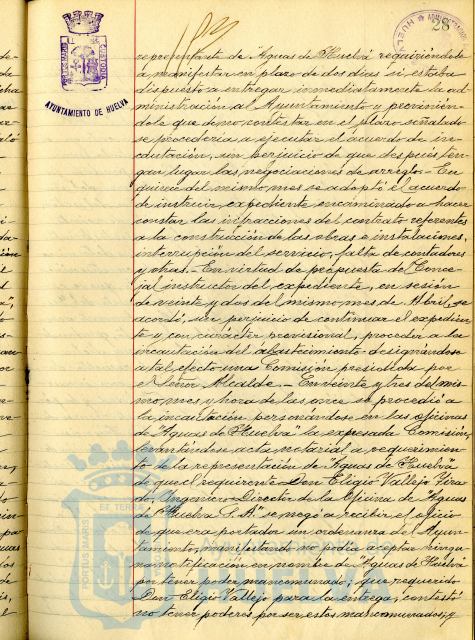 28
AYUNTAMIENTO DE HUELVA
representante de "Aguas de Huelva" requiriéndole
a manifestar en plazo de dos dias si estaba
dispuesto a entregar inmediatamente la ad-
ministración al Ayuntamiento y previnién-
dole que de no contestar en el plazo señalado
se procederia a ejecutar el acuerdo de in-
cautación, sin perjuicio de que despues ten-
gan lugar las negociaciones de arreglo.- En
quince del mismo mes se adoptó el acuerdo
de instruir expediente encaminado a hacer
constar las infracciones del contrato referentes
a la construcción de las obras e instalaciones,
interrupción del servicio, falta de contadores
y otras.- En virtud de propuesta del Conce-
jal instructor del expediente, en sesión
de veinte y dos del mismo mes de Abril, se
acordó, sin perjuicio de continuar el expedien-
te y con carácter provisional, proceder a la
incautación del abastecimiento designándose
a tal efecto una Comisión presidida por
el Señor Alcalde.- En veinte y tres del mis-
mo mes y hora de las once se procedió a
la incautación personándose en las oficinas
de "Aguas de Huelva" la expresada Comisión,
levantándose acta notarial a requerimien-
to de la representación de Aguas de Huelva
de que el requirente Don Eligio Vallejo
do, Ingeniero Director de la Oficina de "Aguas
de Huelva S.A." se negó a recibir el oficio
de que era portador un ordenanza del Ayun-
tamiento, manifestando no podia aceptar ningu-
na notificación en nombre de Aguas de Huelva
por tener poder mancomunado; que requerido
Don Eligio Vallejo para la entrega, contestó
no tener poderes por ser estos mancomunados, y
PORTUS MARIS ET TERRAE